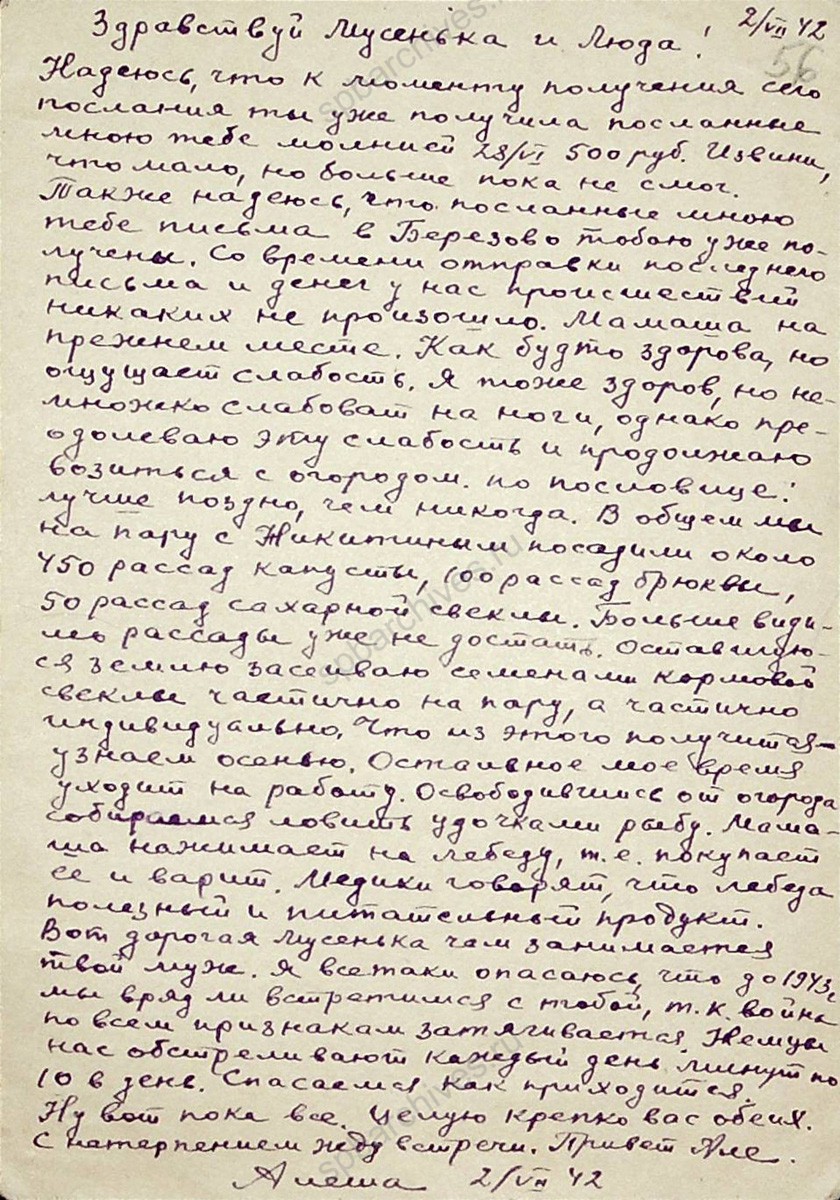 2/VII 42
56
Здравствуй Мусенька и Люда!
Надеюсь, что к моменту получения сего
послания ты уже получила посланные
мною тебе молнией 28/VI 500 руб. Извини,
что мало, но больше пока не смог.
Также надеюсь, что посланные мною
тебе письма в Березово тобою уже по-
лучены. Со времени отправки последнего
письма и денег у нас происшествий
никаких не произошло. Мамаша на
прежнем месте. Как будто здорова, но
ощущает слабость. Я тоже здоров, но не-
множко слабоват на ноги, однако пре-
одолеваю эту слабость и продолжаю
возиться с огородом. по пословице:
лучше поздно, чем никогда. В общем мы
на пару с Никитиным посадили около
450 рассад капусты, 100 рассад брюквы,
50 рассад сахарной свеклы. Больше види-
мо рассады уже не достать. Оставшую-
ся землю засеиваю семенами кормовой
свеклы частично на пару, а частично
индивидуально. Что из этого получится –
узнаем осенью. Остальное мое время
уходит на работу. Освободившись от огорода
собираемся ловить удочками рыбу. Мама-
ша нажимает на лебеду, т.е. покупает
ее и варит. Медики говорят, что лебеда
полезный и питательный продукт.
Вот дорогая Мусенька чем занимается
твой муж. Я всетаки опасаюсь, что до 1943г
мы вряд ли встретимся с тобой, т.к. война
по всем признакам затягивается. Немцы
нас обстреливают каждый день минут по
10 в день. Спасаемся как приходится.
Ну вот пока все. Целую крепко вас обеих.
С нетерпением жду встречи. Привет Але.
Алеша 2/VII 42
spbarchives.ru
spbarchives.ru
spbarchives.ru